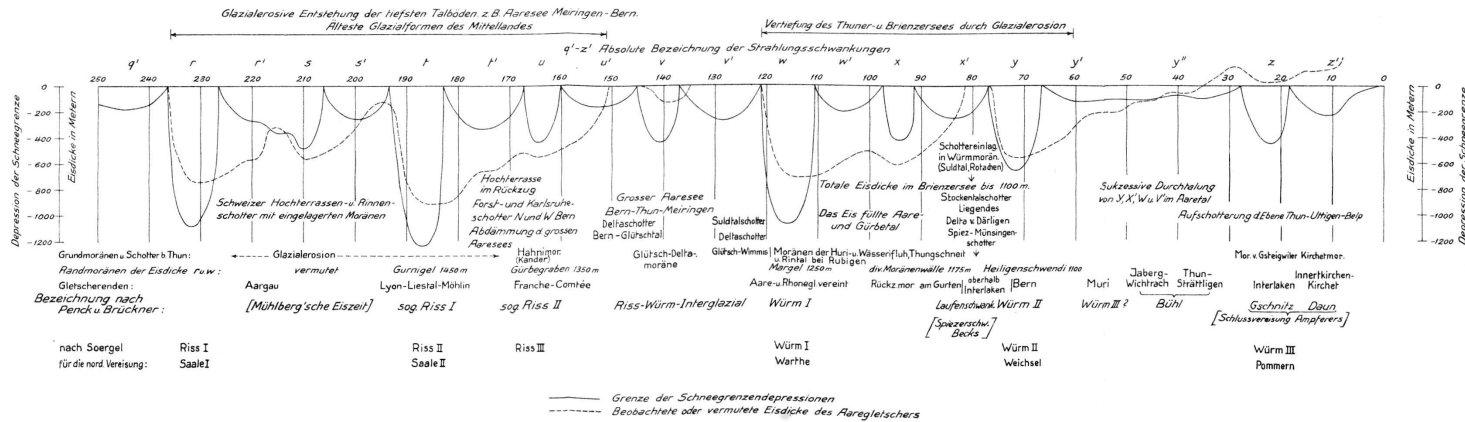 Glazialerosive Entstehung der tiefsten Talböden z.B. Aaresee Meiringen-Bern.
Älteste Glazialformen des Mittellandes
Vertiefung des Thuner- u. Brienzersees durch Glazialerosion
q'-z' Absolute Bezeichnung der Strahlungsschwankungen
q' r r' s s' t t' u u' v v' w w' x x' y y' y'' z z'j
250 240 230 220 210 200 190 180 170 160 150 140 130 120 110 100 90 80 70 60 50 40 30 20 10 0
Depression der Schneegrenze
Eisdicke in Metern
0 -200 -400 -600 -800 -1000 -1200
Eisdicke in Metern
Depression der Schneegrenze
0 -200 -400 -600 -800 -1000 -1200
Schweizer Hochterrassen- u. Rinnen-
schotter mit eingelagerten Moränen
Hochterrasse
im Rückzug
Forst- und Karlsruhe-
schotter N und W Bern
Abdämmung d. grossen
Aaresees
Grosser Aaresee
Bern-Thun-Meiringen
Deltaschotter
Bern-Glütschtal
Suldtalschotter
Deltaschotter
Totale Eisdicke im Brienzersee bis 1100 m.
Das Eis füllte Aare-
und Gürbetal
Schottereinlag.
in Würmmorän.
(Suldtal, Rotachen)
Stockentalschotter
Liegendes
Delta v. Därligen
Spiez-Münsingen-
schotter
Sukzessive Durchtalung
von Y, X', W u V' im Aaretal
Aufschotterung d. Ebene Thun-Uttigen-Belp
Grundmoränen u. Schotter b. Thun:
Glazialerosion
Hahnimor.
(Kander)
Glütsch-Delta-
moräne
Glütsch-Wimmis
Moränen der Huri- u. Wasserfluh, Thungschneit
u. Rintal bei Rubigen
Mor. v. Gsteigwiler Kirchetmor.
Randmoränen der Eisdicke r u w:
vermutet
Gurnigel 1450 m
Gürbegraben 1350 m
Margel 1250 m
div. Moränenwälle 1175 m
Heiligenschwendi 1100
Gletscherenden:
Aargau
Lyon-Liestal-Möhlin
Franche-Comtée
Aare- u. Rhonegl. vereint
Rückz. mor am Gurten
oberhalb
Interlaken
Bern
Muri
Jaberg-
Wichtrach
Thun-
Strättligen
Interlaken
Innertkirchen-
Kirchet
Bezeichnung nach
Penck u. Brückner:
[Mühlberg'sche Eiszeit]
sog. Riss I
sog. Riss II
Riss-Würm-Interglazial
Würm I
Laufenschwank.
[Spiezerschw.
Becks]
Würm II
Würm III?
Bühl
Gschnitz Daun
[Schlussvereisung Ampferers]
nach Soergel
Riss I
Riss II
Riss III
Würm I
Würm II
Würm III
für die nord. Vereisung:
Saale I
Saale II
Warthe
Weichsel
Pommern
Grenze der Schneegrenzendepressionen
Beobachtete oder vermutete Eisdicke des Aaregletschers